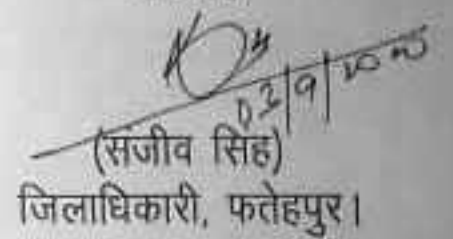 03|9|2020
(संजीव सिंह)
जिलाधिकारी, फतेहपुर।